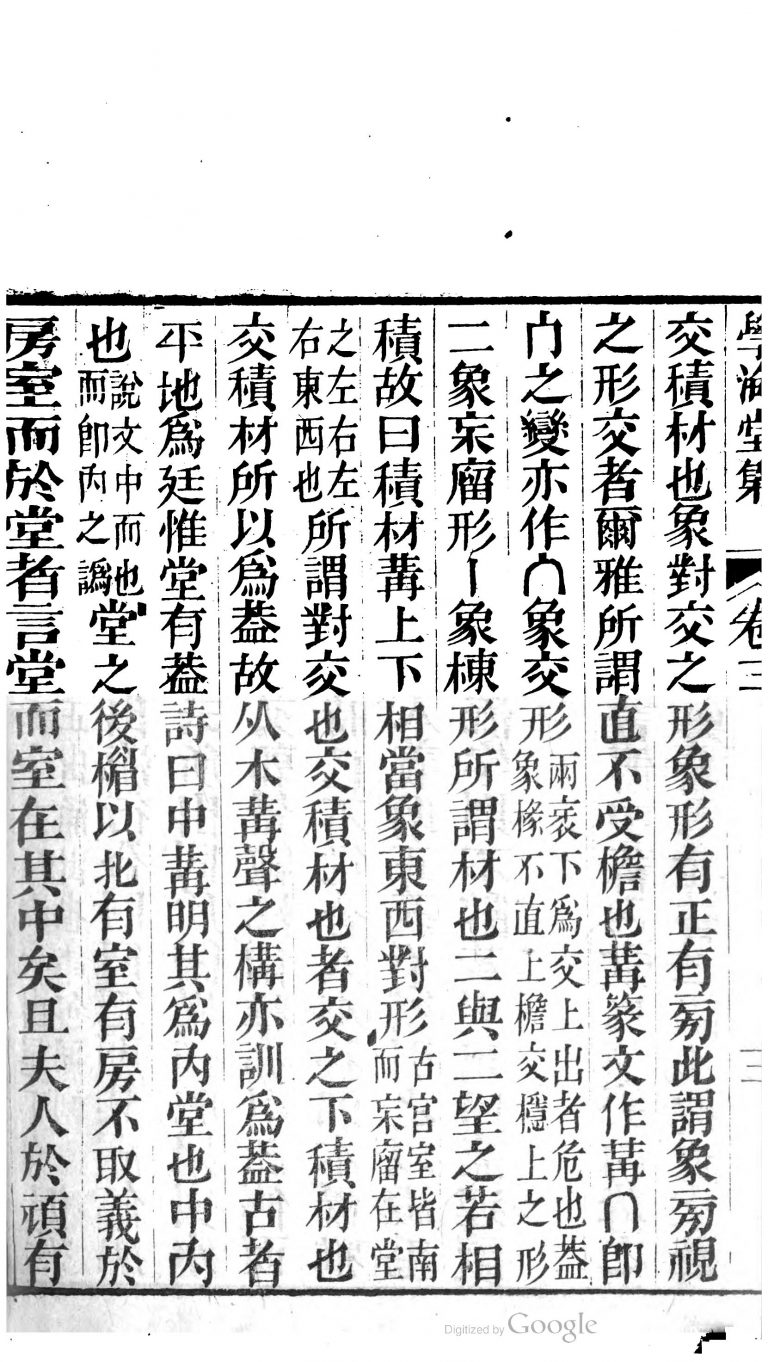 學海堂集 卷三 二
交積材也象對交之形象形有正有㫄此謂象㫄視
之形交者爾雅所謂直不受檐也冓篆文作冓冂即
冂之變亦作∩象交形兩衺下爲交上出者危也葢象椽不直上檐交穩上之形
二象宋廇形丨象棟形所謂材也二與二望之若相
積故曰積材冓上下相當象東西對形古宫室皆南而宋廇在堂
之左右左右東西也所謂對交也交積材也者交之下積材也
交積材所以爲葢故从木冓聲之構亦訓爲葢古者
平地爲廷惟堂有葢詩曰中冓明其爲內堂也中內
也說文中而也而卽內之譌堂之後楣以北有室有房不取義於
房室而於堂者言堂而室在其中矣且夫人於頑有
Digitized by Google